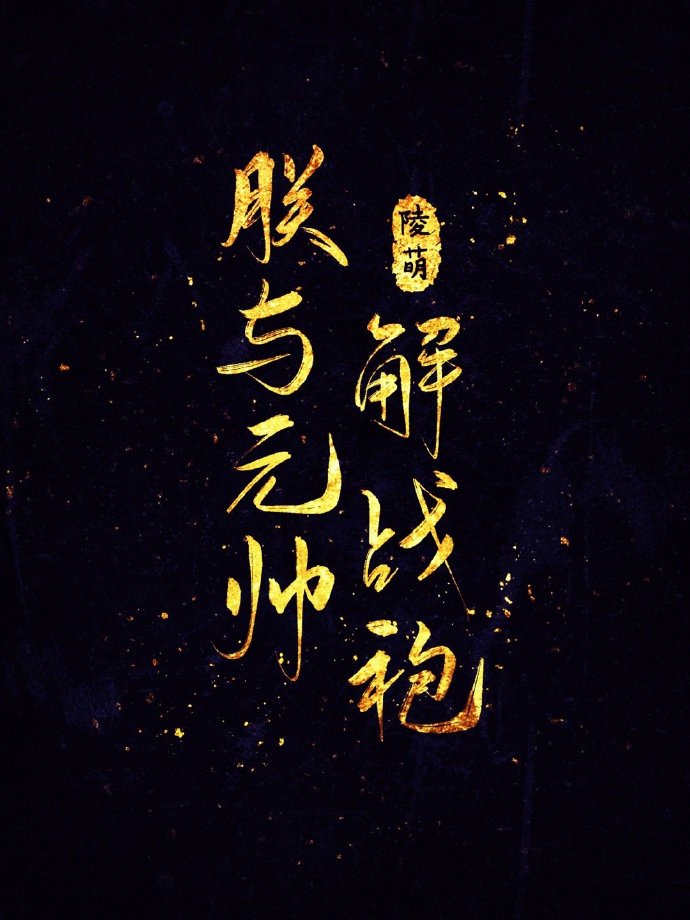 朕与元帅
解战袍
陵萌